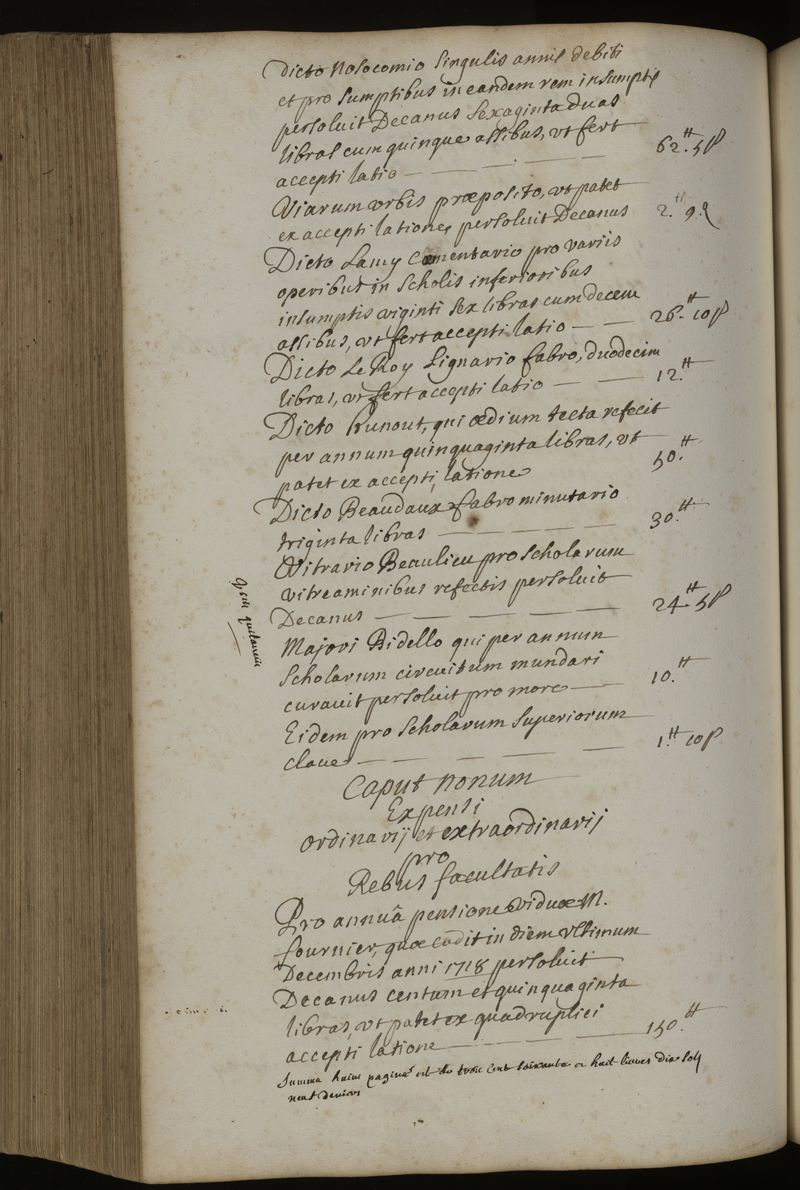 Dicto Nosocomio singulis annis debiti
et pro sumptibus in eandem rem insumptis
persoluit Decanus sexaginta duas
libras cum quinque assibus, vt fert
accepti latio — 62.tt 5 s
Viarum vrbis præposito, vt patet
ex accepti latione, persoluit Decanus 2.tt 9.d
Dicto Lamy Cæmentario pro variis
operibus in Scholis inferioribus
insumptis viginti sex libras cum decem
assibus, vt fert accepti latio — 26.tt 10 s
Dicto Le Roy lignario fabro, duodecim
libras, vt fert accepti latio — 12.tt
Dicto Runout, qui ædium tecta refecit
per annum quinquaginta libras, vt
patet ex accepti latione 50.tt
Dicto Beaudaux fabro minutario
triginta libras — 30.tt
Vitrario Beaulieu pro Scholarum
vitreaminibus refectis persoluit
Decanus — 24.tt 5 s
Majori Bidello qui per annum
Scholarum circuitum mundari
curauit persoluit pro more — 10.tt
Eidem pro Scholarum Superiorum
claue — 1.tt 10 s
Caput nonum
Expensi
ordinarij et extraordinarij
pro
Rebus facultatis
Pro annuâ pensione viduæ M.
fournier, quæ cadit in diem vltimum
Decembris anni 1718 persoluit
Decanus centum et quinquaginta
libras, vt patet ex quadruplici
accepti latione — 150.tt
Summa huius paginæ est de trois cent soixante et huit livres dix sols
neuf deniers